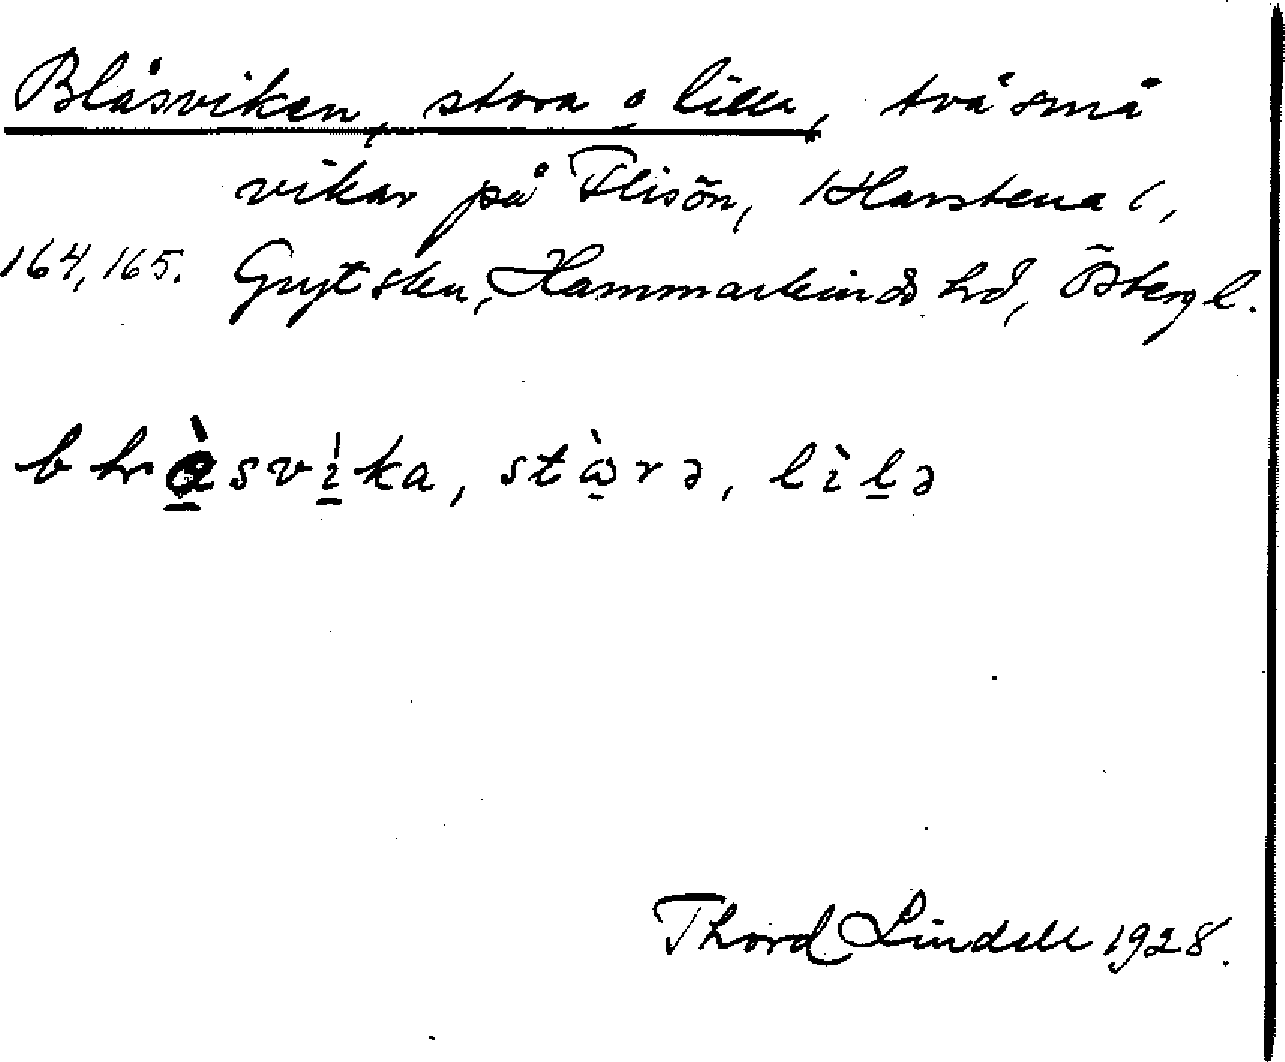 Blåsviken, stora o lilla, två små
vikar på Flisön, /Harstena/,
164, 165. Gryt skn, Hammarkinds hd, Östergl.
blɑ̀svìka, stὼrə, lìlə
Thord Lindell 1928.